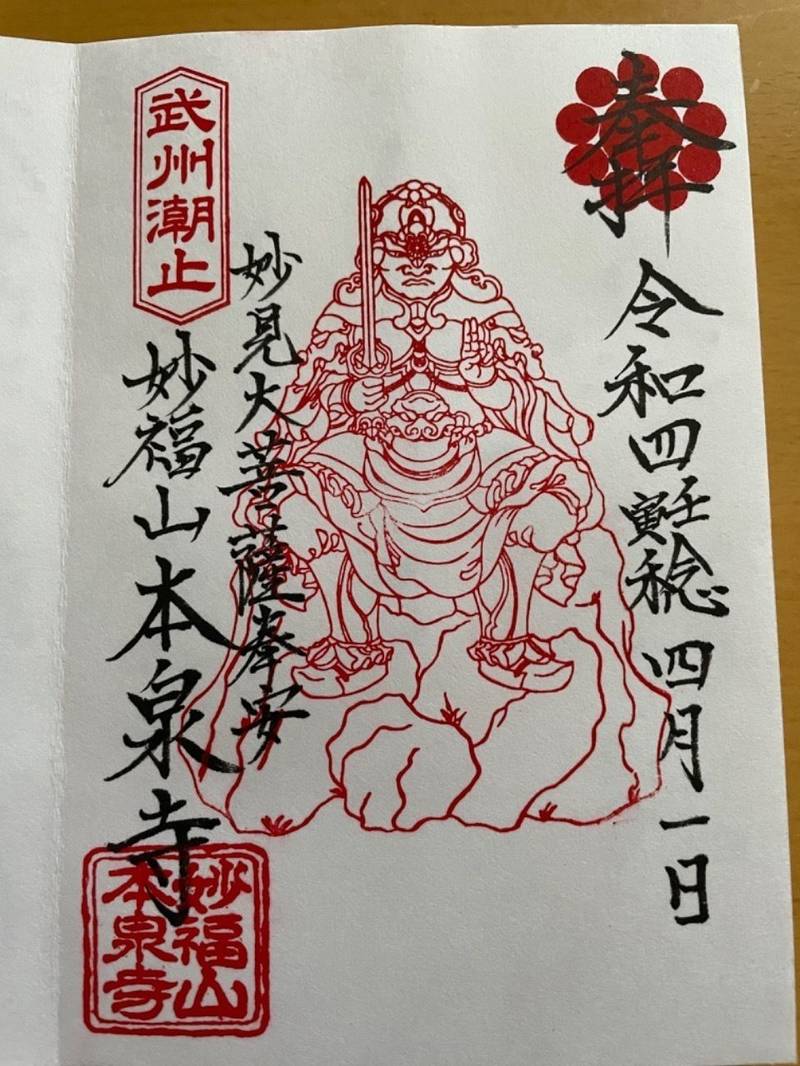 奉拝
令和四壬寅稔四月一日
妙見大菩薩奉安
武州潮止
妙福山本泉寺
妙福山
本泉寺